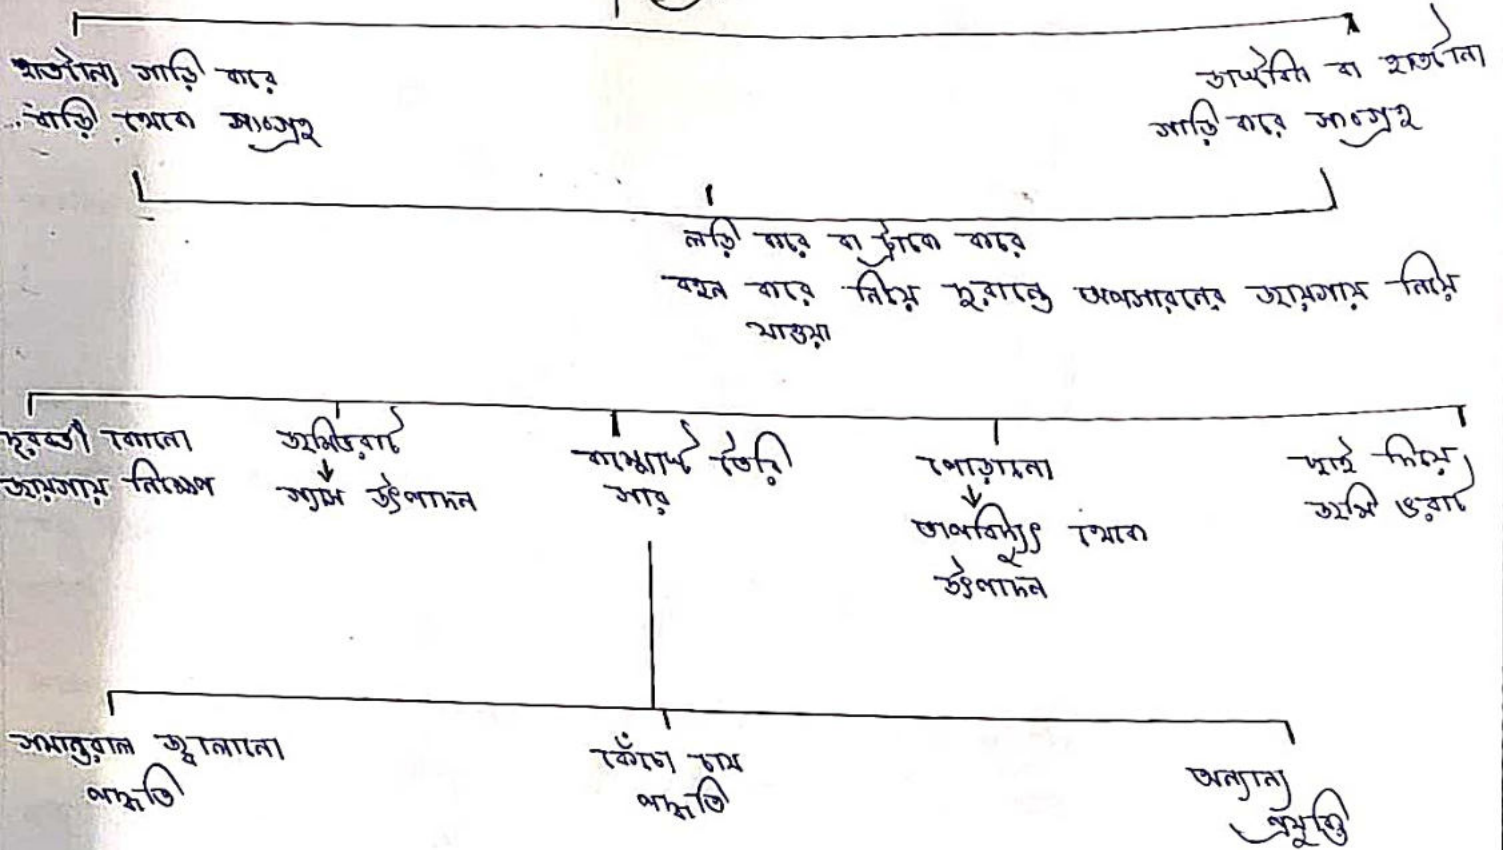 হাতটানা গাড়ি করে
বাড়ি থেকে সংগ্রহ
ডাস্টবিন বা হাতটানা
গাড়ি করে সংগ্রহ
লড়ি করে বা ট্রাকে করে
বহন করে নিয়ে দূরান্তে অপসারনের জায়গায় নিয়ে
যাওয়া
দূরবর্তী কোনো
জায়গায় নিক্ষেপ
জমিভরাট
↓
গ্যাস উৎপাদন
কম্পোস্ট তৈরি
সার
পোড়ানো
↓
তাপবিদ্যুৎ থেকে
উৎপাদন
ছাই দিয়ে
জমি ভরাট
সমান্তরাল জ্বালানো
পদ্ধতি
কেঁচো চাষ
পদ্ধতি
অন্যান্য
প্রযুক্তি